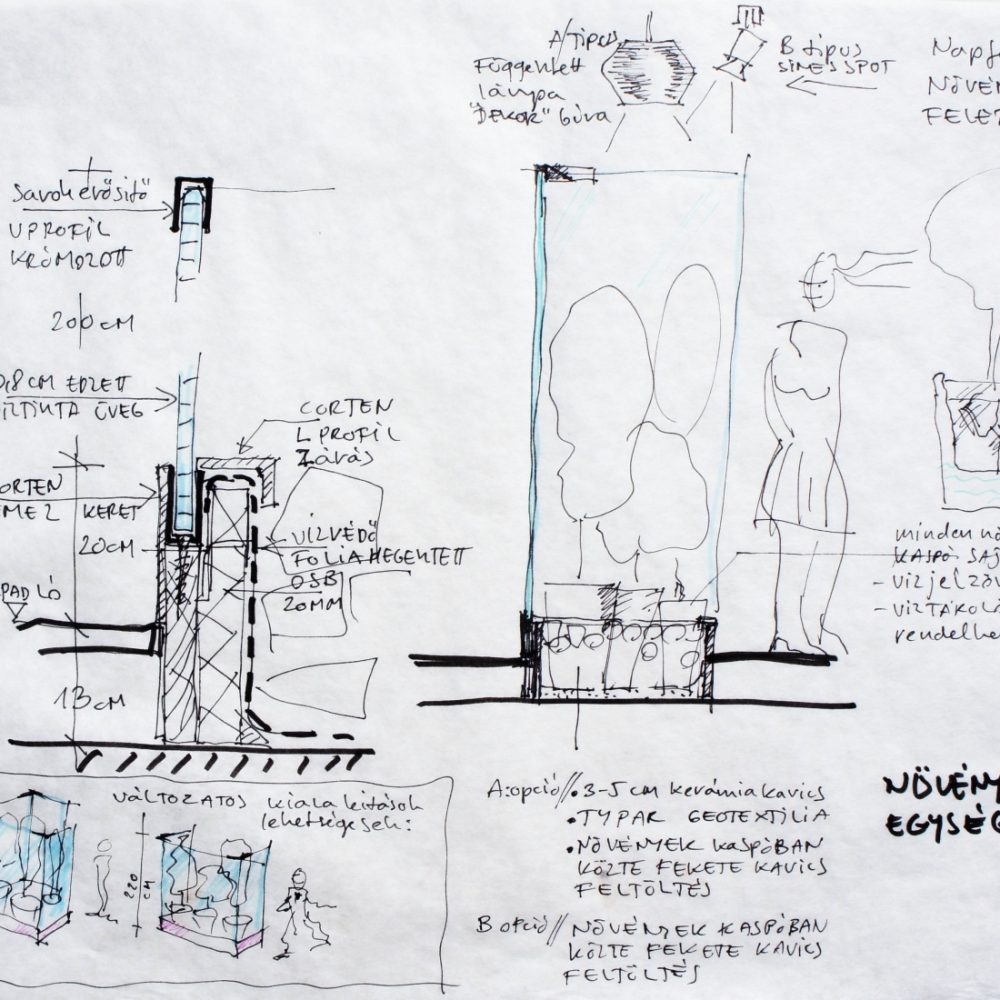 A/TIPUS
Függesztett
lámpa
"DEKOR" búra
B TIPUS
SINES SPOT
Napf
NÖVÉN
FELET
Sarokerősítő
U PROFIL
KRÓMOZOTT
200 CM
0,8 CM EDZETT
VÍZTISZTA ÜVEG
CORTEN
L PROFIL
Zárás
ORTEN
EMEZ KERET
20CM
VÍZVÉDŐ
FÓLIA HEGESZTETT
OSB
20MM
PADLÓ
13 CM
minden nö
KASPÓ SAJ
- VÍZJELZŐV
- VÍZTÁROLÓ
rendelhe
VÁLTOZATOS kialakítások
lehetségesek:
220
CM
A:opció//•3-5 cm kerámiakavics
•TYPAR GEOTEXTILIA
•NÖVÉNYEK KASPÓBAN
KÖZTE FEKETE KAVICS
FELTÖLTÉS
B opció// NÖVÉNYEK KASPÓBAN
KÖZTE FEKETE KAVICS
FELTÖLTÉS
NÖVÉNY
EGYSÉG